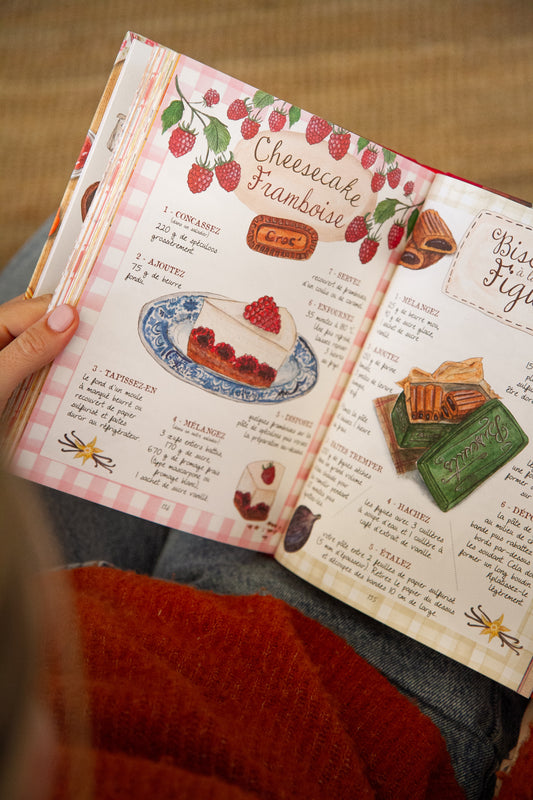 Cheesecake
Framboise
Croc'
1 - CONCASSEZ
(dans un saladier)
220 g de spéculoos
grossièrement
2 - AJOUTEZ
75 g de beurre
fondu
3 - TAPISSEZ-EN
le fond d'un moule
à manqué beurré et
recouvert de papier
sulfurisé et faites
durcir au réfrigérateur
4 - MÉLANGEZ
(dans un saladier)
3 œufs entiers battus
170 g de sucre
670 g de fromage frais
(type mascarpone ou
fromage blanc)
1 sachet de sucre vanillé
5 - DÉPOSEZ
quelques framboises sur la
pâte de spéculoos puis versez
la préparation au-dessus
6 - ENFOURNEZ
35 minutes à 180 °C
Une fois refroidi
laissez reposer
3 heures
au frigo
7 - SERVEZ
recouvert de framboises
d'un coulis ou de caramel
134
Bisc
à la
Figu
1 - MÉLANGEZ
25 g de beurre mou
g de sucre glace
sachet de sucre
vanillé
AJOUTEZ
FAITES TREMPER
4 - HACHEZ
les figues avec 3 cuillères
à soupe d'eau et 1 cuillère à
café d'extrait de vanille
5 - ÉTALEZ
votre pâte entre 2 feuilles de papier sulfurisé
(5 mm d'épaisseur). Retirez le papier du dessus
et découpez des bandes de 10 cm de large.
6 - DÉPO
la pâte de
au milieu de
puis rabattez
bords par-dessus
les soudant. Cela do
former un long boudin
Aplatissez-le
légèrement
Biscuits
135